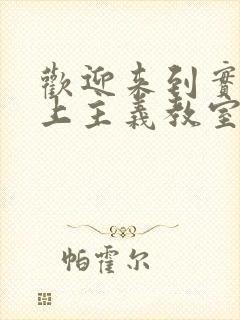 歡迎来到實
上主義教室
帕霍尔